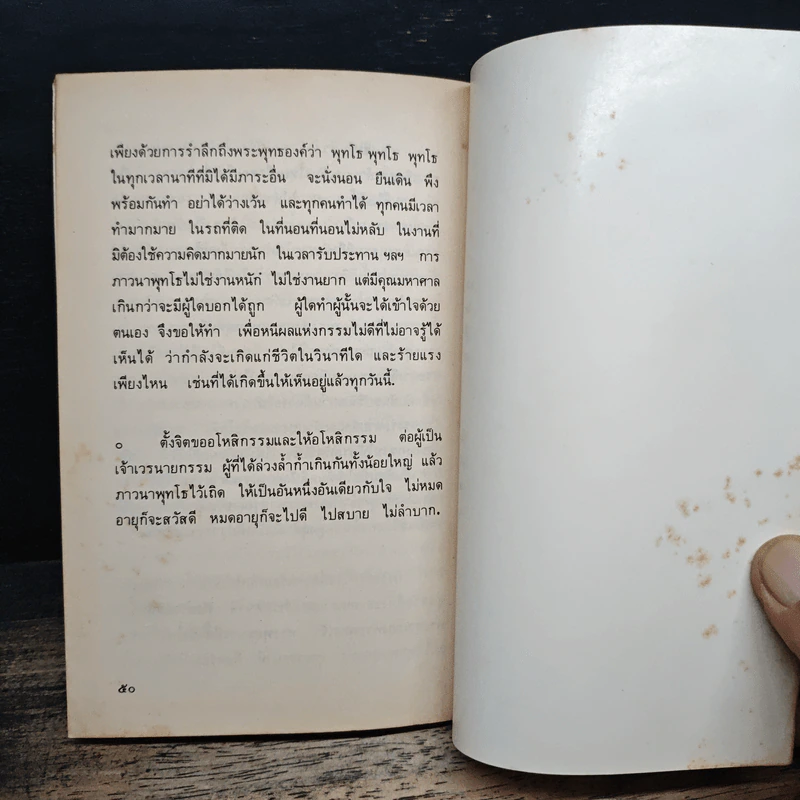 เพียงด้วยการรำลึกถึงพระพุทธองค์ว่า พุทโธ พุทโธ พุทโธ
ในทุกเวลานาทีที่มิได้มีภาระอื่น จะนั่งนอน ยืนเดิน พึง
พร้อมกันทำ อย่าได้ว่างเว้น และทุกคนทำได้ ทุกคนมีเวลา
ทำมากมาย ในรถที่ติด ในที่นอนที่นอนไม่หลับ ในงานที่
มิต้องใช้ความคิดมากมายนัก ในเวลารับประทาน ฯลฯ การ
ภาวนาพุทโธไม่ใช่งานหนัก ไม่ใช่งานยาก แต่มีคุณมหาศาล
เกินกว่าจะมีผู้ใดบอกได้ถูก ผู้ใดทำผู้นั้นจะได้เข้าใจด้วย
ตนเอง จึงขอให้ทำ เพื่อหนีผลแห่งกรรมไม่ดีที่ไม่อาจรู้ได้
เห็นได้ ว่ากำลังจะเกิดแก่ชีวิตในวินาทีใด และร้ายแรง
เพียงไหน เช่นที่ได้เกิดขึ้นให้เห็นอยู่แล้วทุกวันนี้.
๐ ตั้งจิตขออโหสิกรรมและให้อโหสิกรรม ต่อผู้เป็น
เจ้าเวรนายกรรม ผู้ที่ได้ล่วงล้ำก้ำเกินกันทั้งน้อยใหญ่ แล้ว
ภาวนาพุทโธไว้เถิด ให้เป็นอันหนึ่งอันเดียวกับใจ ไม่หมด
อายุก็จะสวัสดี หมดอายุก็จะไปดี ไปสบาย ไม่ลำบาก.
๕๐